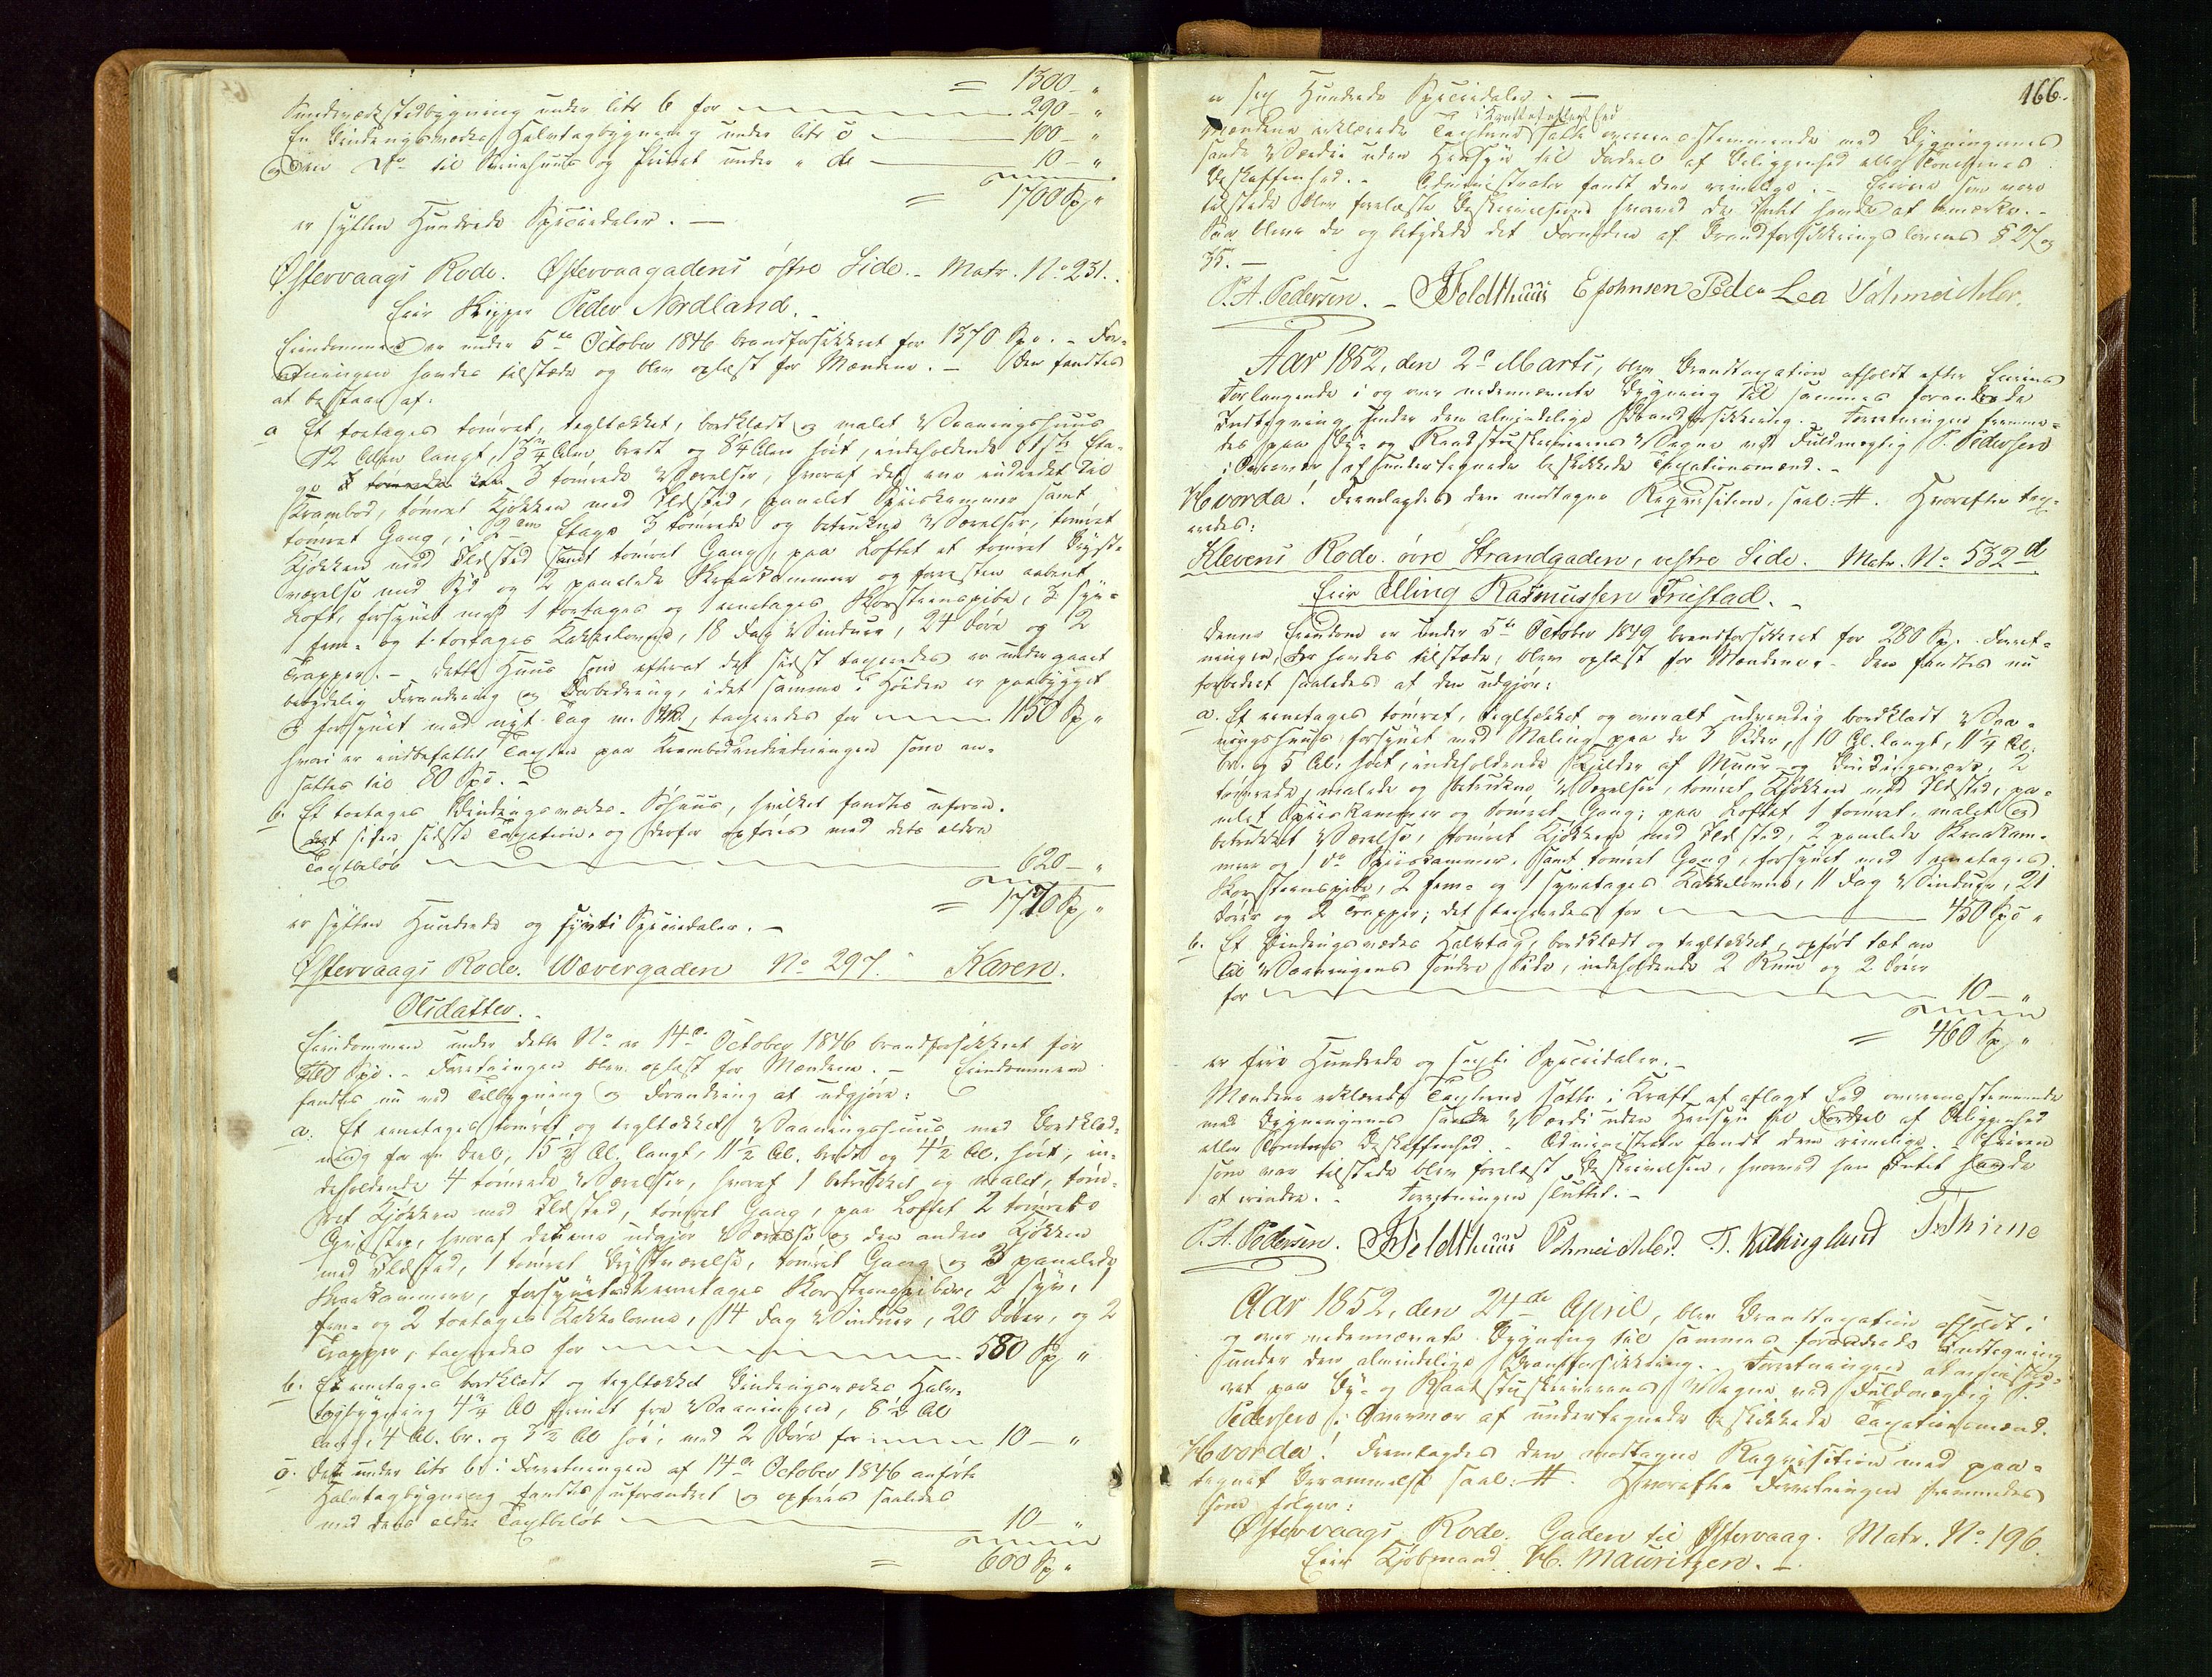 = 1300 - "
Sundværkstedbygning under litr b for 290 - "
En Bindingsværkes Halvtagbygning under litr c 100 - "
og een Do til Svinehuus og Privet under " d 10 - "
= 1700 Spd "
er sytten Hundrede Speciedaler. -
Østervaags Rode. Østervaagadens østre Side. - Matr. No 231.
Eier Skipper Peder Nordland. -
Eiendommen er under 5te October 1846 brandforsikkret for 1370 Spd. - For-
retningen havdes tilstæde og blev oplæst for Mændene. - Den fandtes
at bestaae af:
a Et toetages tømret, tegltækket, bordklædt og malet Vaaningshuus
12 Alen langt, 13 3/4 Alen bredt og 8 1/4 Alen høit, indeholdende i 1ste Eta-
ge 3 tømrede Værelser, hvoraf det ene indredet til
Krambod, tømret Kjøkken med Ildsted, panelet Spiiskammer samt
tømret Gang, i 2den Etage 3 tømrede og betrukne Værelser, tømret
Kjøkken med Ildsted samt tømret Gang, paa Loftet et tømret Qvist-
værelse mod Syd og 2 panelede Skraakammere og forresten aabent
Loft, forsynet med 1 toetages og 1 eenetages Skorsteenspibe, 3 syv-
1 fem- og 1 toetages Kakkelovne, 18 Fag Vinduer, 24 Døre og 2
Trapper. - Dette Huus som efterat det sidst taxeredes er undergaaet
betydelig Forandring og Forbedring, idet samme i Høiden er paabygget
og forsynet med nyt Tag m. m., taxeredes for 1150 Spd "
hvori er indbefattet Taxten paa Krambodindredningen som an-
sattes til 80 Spd. -
b. Et toetages Bindingsværkes Søhuus, hvilket fandtes uforan-
dret siden sidste Taxation og derfor opføres med dets ældre
Taxtbeløb 620 - "
= 1770 Spd "
er sytten Hundrede og syvti Speciedaler. -
Østervaags Rode. Wævergaden No 297. - Karen
Olsdatter. -
Eiendommen under dette No er 14de October 1846 brandforsikkret for
Spd. - Forretningen blev oplæst for Mændene. - Eiendommen
fandtes nu ved Tilbygning og Forandring at udgjøre:
a. Et eenetages tømret og tegltækket Vaaningshuus med Bordklæd-
ning for en Deel, 15 1/2 Al. langt, 11 1/2 Al. bredt og 4 1/2 Al. høit, in-
deholdende 4 tømrede Værelser, hvoraf 1 betrukket og malet, tøm-
ret Kjøkken med Ildsted, tømret Gang, paa Loftet 2 tømrede
Qvister, hvoraf den ene udgjør Værelse og den anden Kjøkken
med Ildsted, 1 tømret Qvistværelse, tømret Gang og 3 panelede
Skraakammere, forsynet med eenetages Skorsteenspiber, 2 syv, 1
fem- og 2 toetages Kakkelovne, 14 Fag Vinduer, 20 Døre, og 2
Trapper, taxeredes for 580 Spd "
b. Et eenetages bordklædt og tegltækket Bindingsværkes Halv-
tagbygning 4 3/4 Al fjernet fra Vaaningen, 8 1/2 Al
lang, 4 Al. br. og 3 1/2 Al høi, med 2 Døre for 10 - "
c. Den under litr b i Forretningen af 14de October 1846 anførte
Halvtagbygning fandtes uforandret og opføres saaledes
med dens ældre Taxtbeløb 10 - "
= 600 Spd "
166.
er sex Hundrede Speciedaler. -
i Kraft af aflagt Eed
Mændene erklærede Taxterne satte overeensstemmende med Bygningernes
sande Værdie uden Hensyn til Fordeel af Beliggenhed eller Tomternes
Beskaffenhed. - Administrator fandt dem rimelige. - Eierne som vare
tilstede blev forelæste Beskrivelserne hvorved de Intet havde at bemærke. -
Saa bleve de og betydede det Fornødne af Brandforsikkringslovens § 27 og
35. -
P. A. Pedersen. - FFeldthuus E Johnsen Peder Lea Pahmeichler.
Aar 1852, den 2de Marts, blev Brandtaxation afholdt efter Eierens
Forlangende i og over nedennævnte Bygning til sammes forandrede
Indtegning under den almindelige Brandforsikkring. Forretningen fremme-
des paa By- og Raadstueskriverens Vegne ved Fuldmægtig P. Pedersen
i Overvær af undertegnede beskikkede Taxationsmænd. -
Hvorda! Fremlagdes den modtagne Reqvisition, saal: #. Hvorefter tax-
eredes:
Klevens Rode. øvre Strandgaden, vestre Side. Matr. No 532 d
Eier Elling Rasmussen Friestad. -
Denne Eiendom er under 5te October 1849 brandforsikkret for 280 Spd. Forret-
ningen, der havdes tilstæde, blev oplæst for Mændene. - Den fandtes nu
forbedret saaledes at den udgjør:
a. Et eenetages tømret, tegltækket og overalt udvendig bordklædt Vaa-
ningshuus forsynet med Maling paa de 3 Sider, 10 Al. langt, 11 1/4 Al.
br. og 5 Al. høit, indeholdende Kjelder af Muur- og Bindingsværk, 2
tømrede, malede og betrukne Værelser, tømret Kjøkken med Ildsted, pa-
nelet Spiiskammer og tømret Gang; paa Loftet 1 tømret, malet og
betrukket Værelse, tømret Kjøkken med Ildsted, 2 panelede Skraakam-
mere og 1 do Spiiskammer, samt tømret Gang, forsynet med 1 eenetages
Skorsteenspibe, 2 fem- og 1 syvetages Kakkelovne, 11 Fag Vinduer, 21
Døre og 2 Trapper; det taxeredes for 450 Spd "
b. Et Bindingsværkes Halvtag, bordklædt og tegltækket, opført tæt an
til Vaaningens søndre Side, indeholdende 2 Rum og 2 Døre
for 10 - "
= 460 Spd "
er fire Hundrede og sexti Speciedaler. -
Mændene erklærede Taxterne satte i Kraft af aflagt Eed overeensstemmende
med Bygningernes sande Værdi uden Hensyn til Fordeel af Beliggenhed
eller Tomtens Beskaffenhed. - Administrator fandt dem rimelige. Eieren
som var tilstede blev forelæst Beskrivelsen, hvorved han Intet havde
at erindre. - Forretningen sluttet. -
P. A. Pedersen. FFeldthuus Pahmeichler. T. Killingland T. Thime
Aar 1852, den 24de April, blev Brandtaxation afholdt i
og over nedennævnte Bygning til sammes forandrede Indtegning
under den almindelige Brandforsikkring. - Forretningen administre-
ret paa By- og Raadstueskriverens Vegne ved Fuldmægtig P.
Pedersen i Overvær af undertegnede beskikkede Taxationsmænd.
Hvorda! Fremlagdes den modtagne Reqvisition med paa-
tegnet Berammelse saal: #. Hvorefter Forretningen fremmedes
som følger:
Østervaags Rode. Gaden til Østervaag. Matr. No 196.
Eier Kjøbmand H. Mauritzen. -